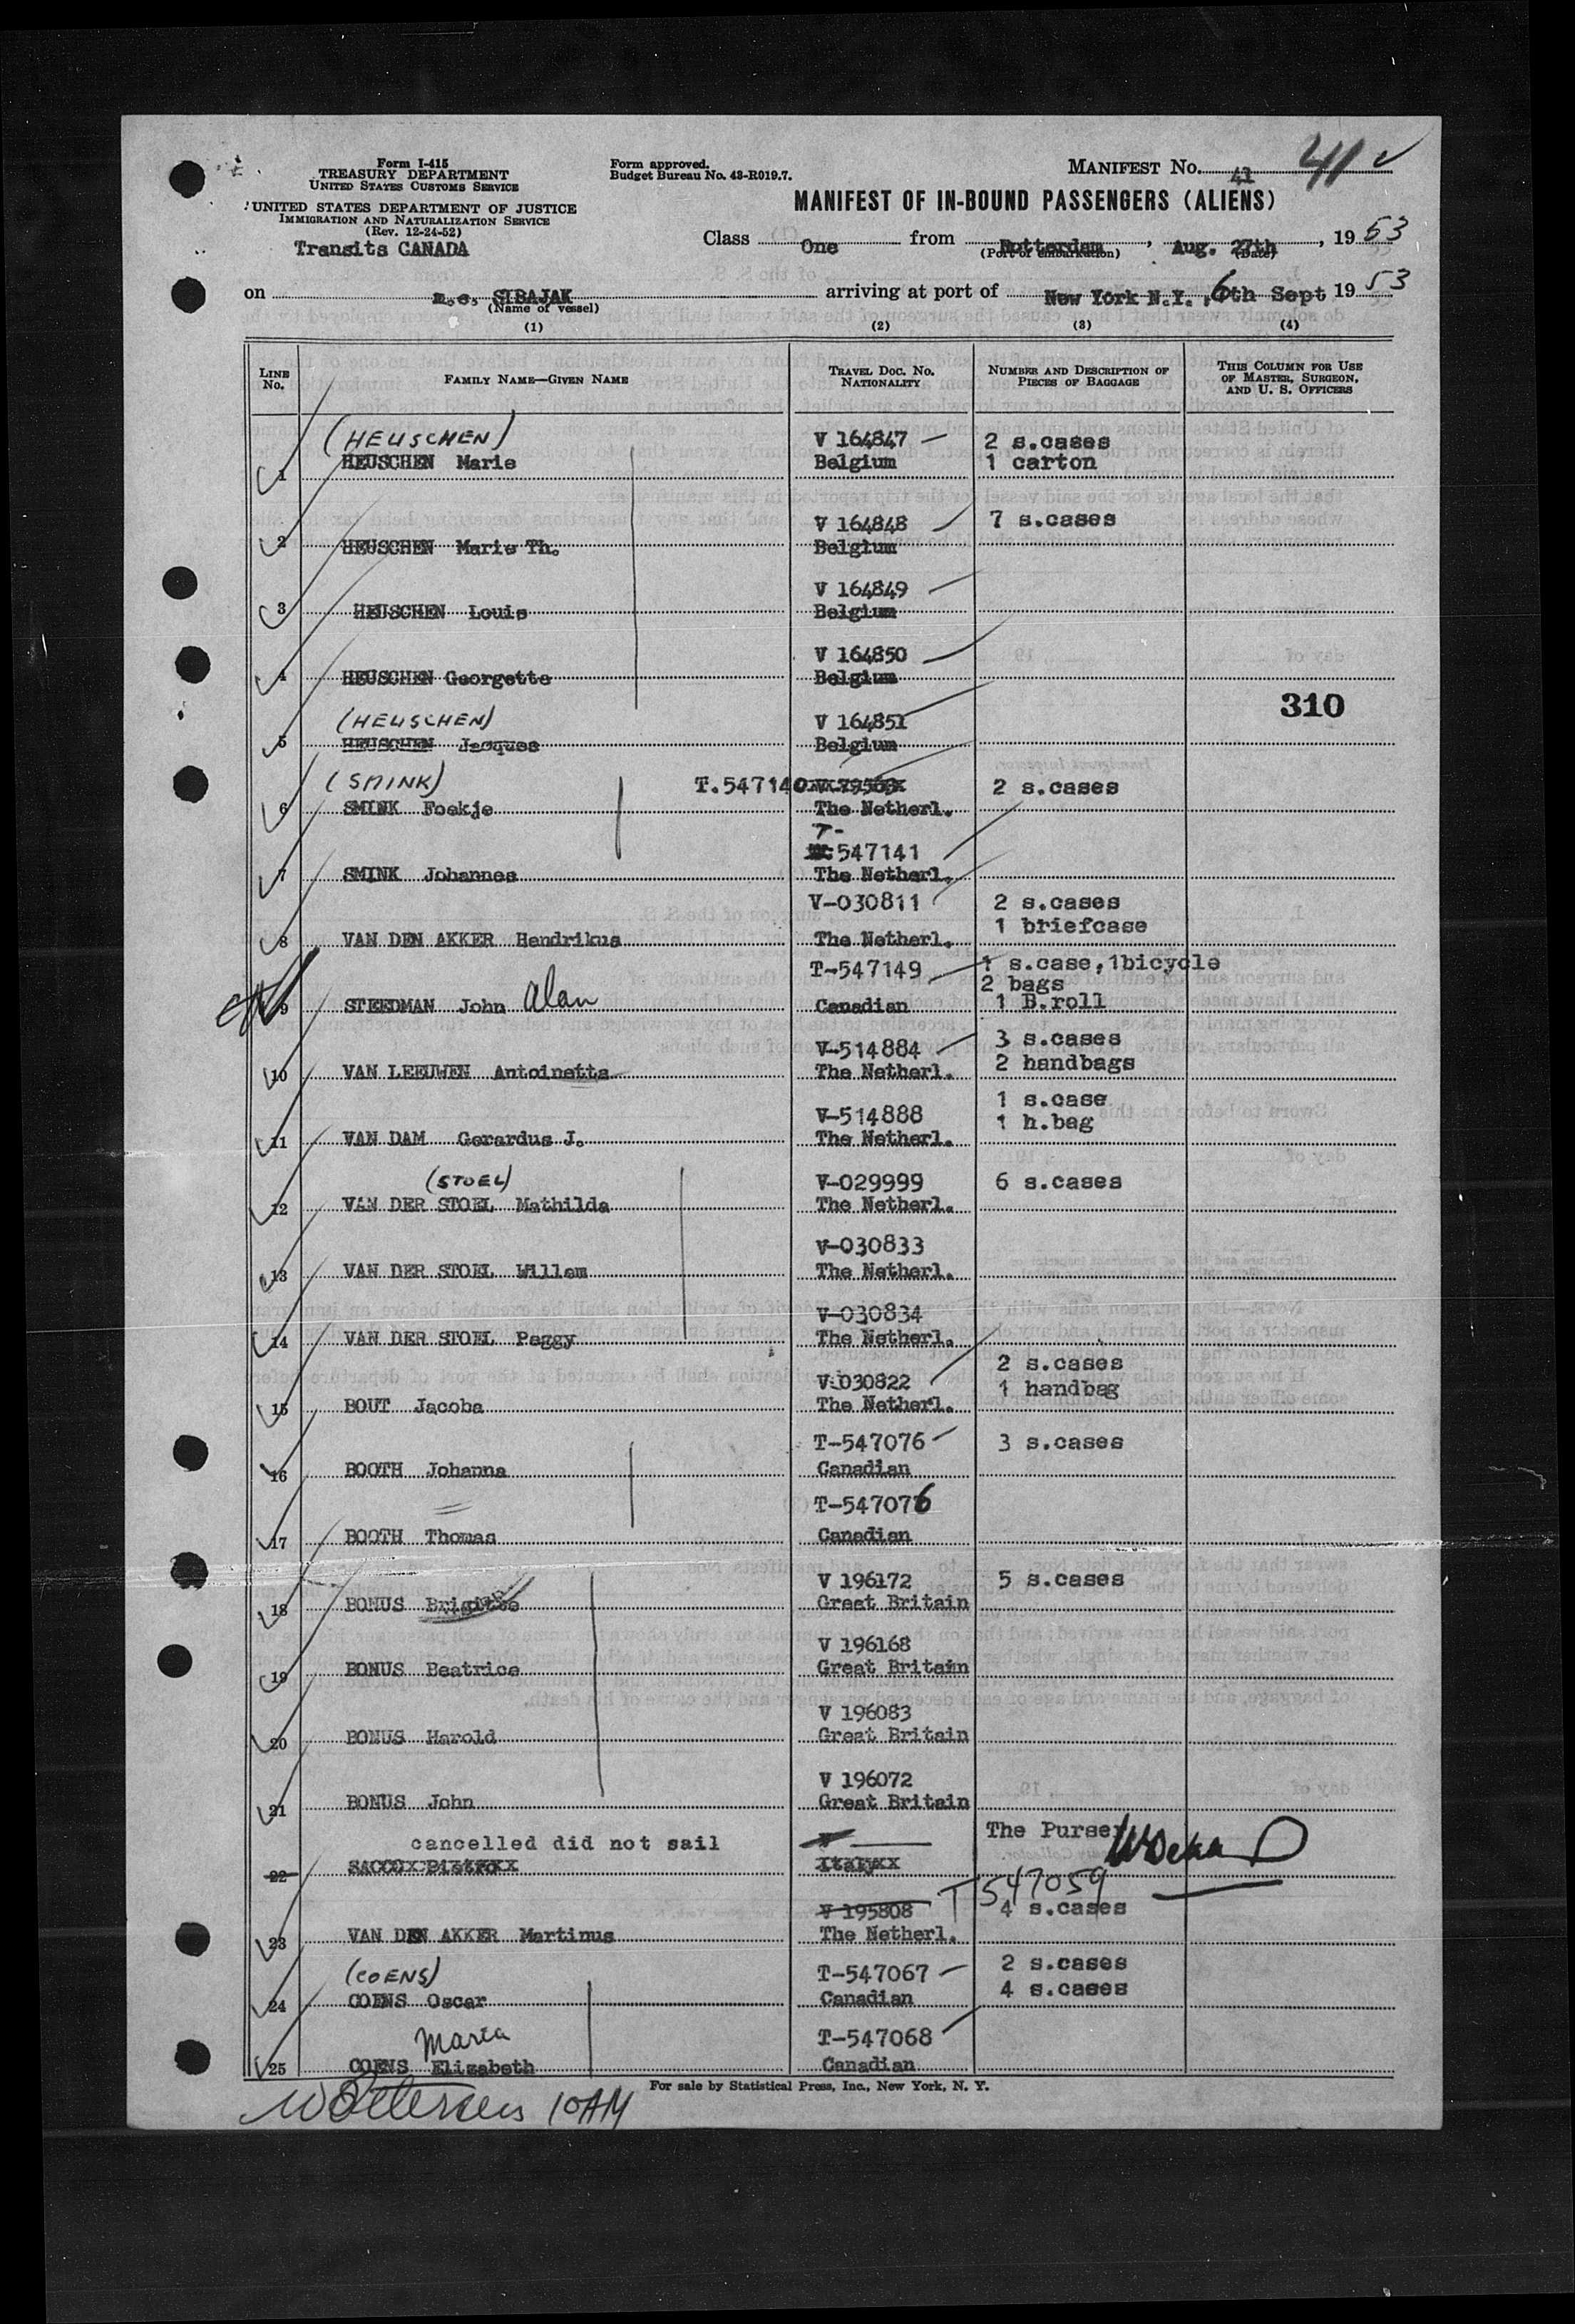 Form I-415
TREASURY DEPARTMENT
UNITED STATES CUSTOMS SERVICE
UNITED STATES DEPARTMENT OF JUSTICE
IMMIGRATION AND NATURALIZATION SERVICE
(Rev. 12-24-52)
Transits CANADA
Form approved.
Budget Bureau No. 43-R019.7.
MANIFEST No. 41 41
MANIFEST OF IN-BOUND PASSENGERS (ALIENS)
Class One from Rotterdam, Aug. 27th, 1953
(Port of embarkation) (Date)
on m.s. SIBAJAK arriving at port of New York N.Y., 6th Sept 1953
(Name of vessel)
(1) (2) (3) (4)
LINE No. FAMILY NAME—GIVEN NAME TRAVEL DOC. NO. NATIONALITY NUMBER AND DESCRIPTION OF PIECES OF BAGGAGE THIS COLUMN FOR USE OF MASTER, SURGEON, AND U. S. OFFICERS
(HEUSCHEN) V 164847 2 s.cases
1 HEUSCHEN Marie Belgium 1 carton
V 164848 7 s.cases
2 HEUSCHEN Marie Th. Belgium
V 164849
3 HEUSCHEN Louis Belgium
V 164850
4 HEUSCHEN Georgette Belgium
310
(HEUSCHEN) V 164851
5 HEUSCHEN Jacques Belgium
(SMINK) T.547140 2 s.cases
6 SMINK Foekje The Netherl.
T-
547141
7 SMINK Johannes The Netherl.
V-030811 2 s.cases
1 briefcase
8 VAN DEN AKKER Hendrikus The Netherl.
T-547149 1 s.case,1bicycle
2 bags
9 STEEDMAN John Alan Canadian 1 B.roll
V-514884 3 s.cases
10 VAN LEEUWEN Antoinetta The Netherl. 2 handbags
1 s.case
V-514888 1 h.bag
11 VAN DAM Gerardus J. The Netherl.
(STOEL) V-029999 6 s.cases
12 VAN DER STOEL Mathilda The Netherl.
V-030833
13 VAN DER STOEL Willem The Netherl.
V-030834
14 VAN DER STOEL Peggy The Netherl.
2 s.cases
V-030822 1 handbag
15 BOUT Jacoba The Netherl.
T-547076 3 s.cases
16 BOOTH Johanna Canadian
T-547076
17 BOOTH Thomas Canadian
V 196172 5 s.cases
18 BONUS Brigitte Great Britain
V 196168
19 BONUS Beatrice Great Britain
V 196083
20 BONUS Harold Great Britain
V 196072
21 BONUS John Great Britain
cancelled did not sail V The Purser
22 Italy
T 547059
V 195808 4 s.cases
23 VAN DEN AKKER Martinus The Netherl.
(COENS) T-547067 2 s.cases
24 COENS Oscar Canadian 4 s.cases
Maria T-547068
25 COENS Elizabeth Canadian
For sale by Statistical Press, Inc., New York, N. Y.
10AM